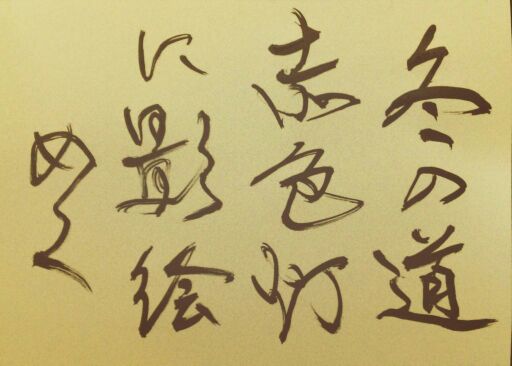 冬の道
赤色灯
に影絵
めく